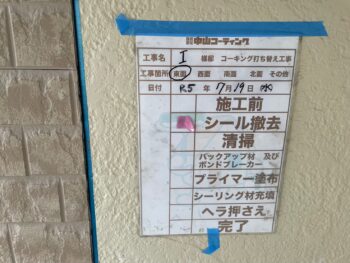 株式会社 中山コーティング
工事名 I 様邸 コーキング打ち替え工事
工事箇所 東面 西面 南面 北面 その他
日付 R.5年 7月19日 水
施工前
シール撤去
清掃
バックアップ材 及び
ボンドブレーカー
プライマー塗布
シーリング材充填
ヘラ押さえ
完了